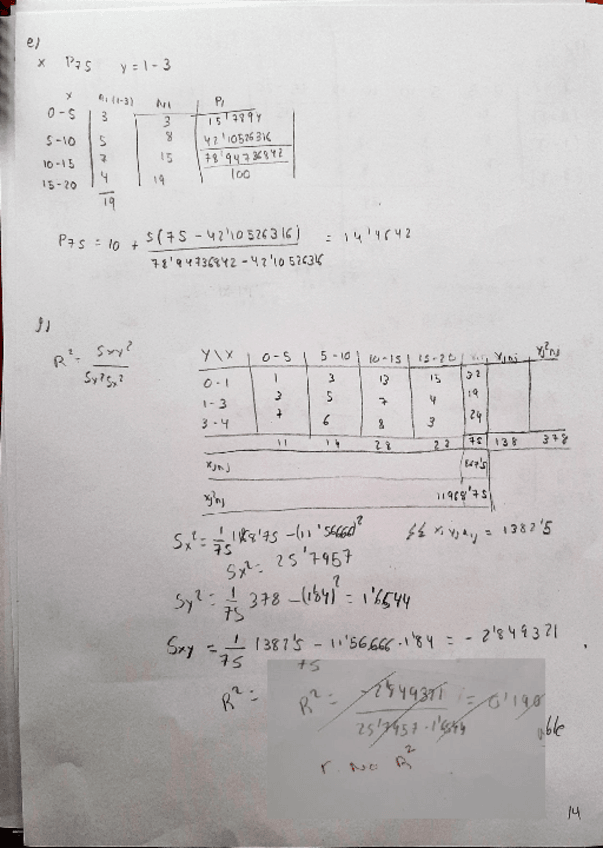 e)
x P75 y = 1-3
x ni (1-3) Ni Pi
0-5 3 3 15'7894
5-10 5 8 42'10526316
10-15 7 15 78'94736842
15-20 4 19 100
19
P75 = 10 + 5(75 - 42'10526316) / 78'94736842 - 42'10526316 = 14'4642
R² = Sxy² / Sy² Sx²
Y\X 0-5 5-10 10-15 15-20 yjnj yj²nj
0-1 1 3 13 15 32
1-3 3 5 7 4 19
3-4 7 6 8 3 24
11 14 28 22 75 138 378
xjnj 867'5
xj²nj 11968'75
Sx² = 1/75 - (11'5666)²
xi yj nij = 1382'5
Sx² = 25'7957
Sy² = 1/75 378 - (1'84)² = 1'6544
Sxy = 1/75 1382'5 - 11'56666 · 1'84 = -2'849321
75
R² = R² = -2'849321 / 25'7957 · 1'6544 = 0'190
r. No R²
14